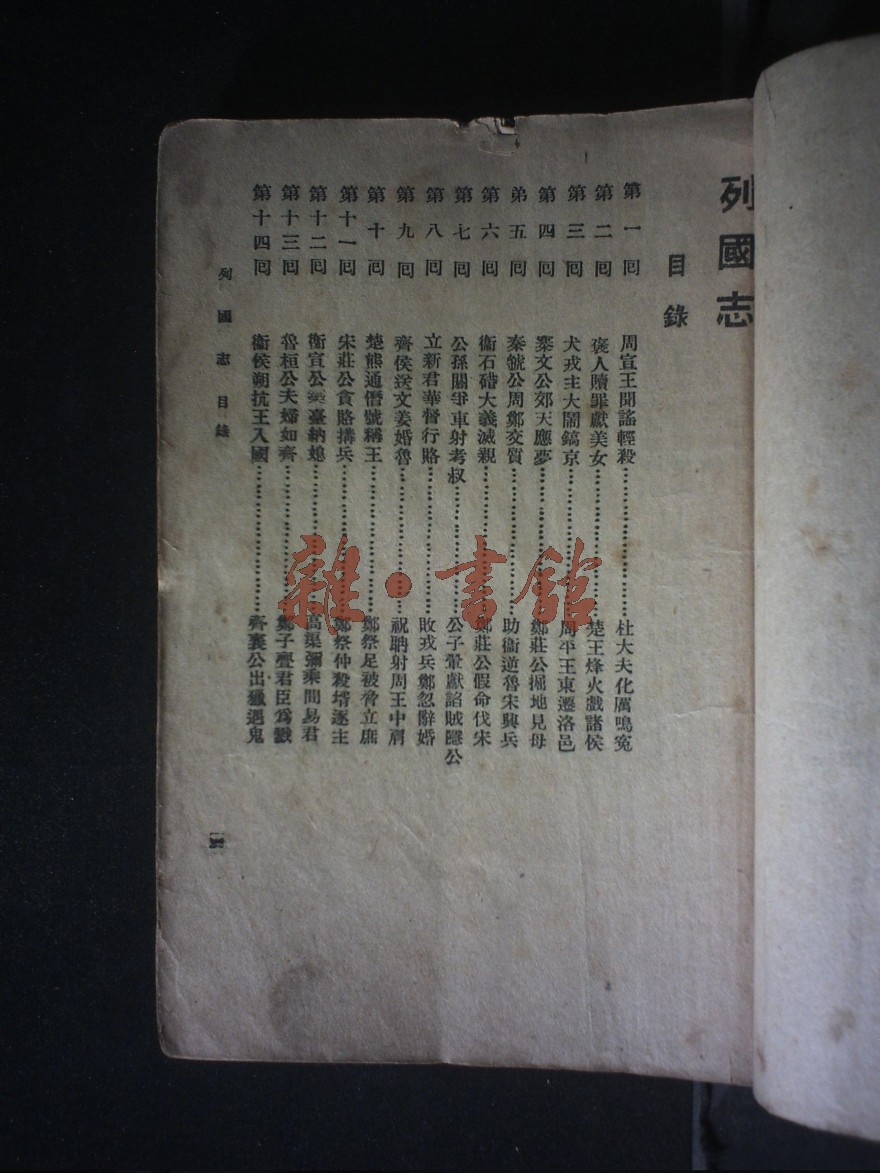 列國志
目錄
第一囘 周宣王聞謠輕殺……………………杜大夫化厲鳴冤
第二囘 褒人贖罪獻美女……………………楚王烽火戲諸侯
第三囘 犬戎主大鬧鎬京……………………周平王東遷洛邑
第四囘 秦文公郊天應夢……………………鄭莊公掘地見母
弟五囘 秦虢公周鄭交質……………………助衞逆魯宋興兵
第六囘 衞石碏大義滅親……………………鄭莊公假命伐宋
第七囘 公孫閼爭車射考叔…………………公子翬獻諂賊隱公
第八囘 立新君華督行賂……………………敗戎兵鄭忽辭婚
第九囘 齊侯送文姜婚魯……………………祝聃射周王中肩
第十囘 楚熊通僭號稱王……………………鄭祭足被脅立庶
第十一囘 宋莊公貪賂搆兵……………………鄭祭仲殺壻逐主
第十二囘 衞宣公築臺納媳……………………高渠彌乘間易君
第十三囘 魯桓公夫婦如齊……………………鄭子亹君臣爲戮
第十四囘 衞侯朔抗王入國……………………齊襄公出獵遇鬼
列國志目錄
一
雜·書館